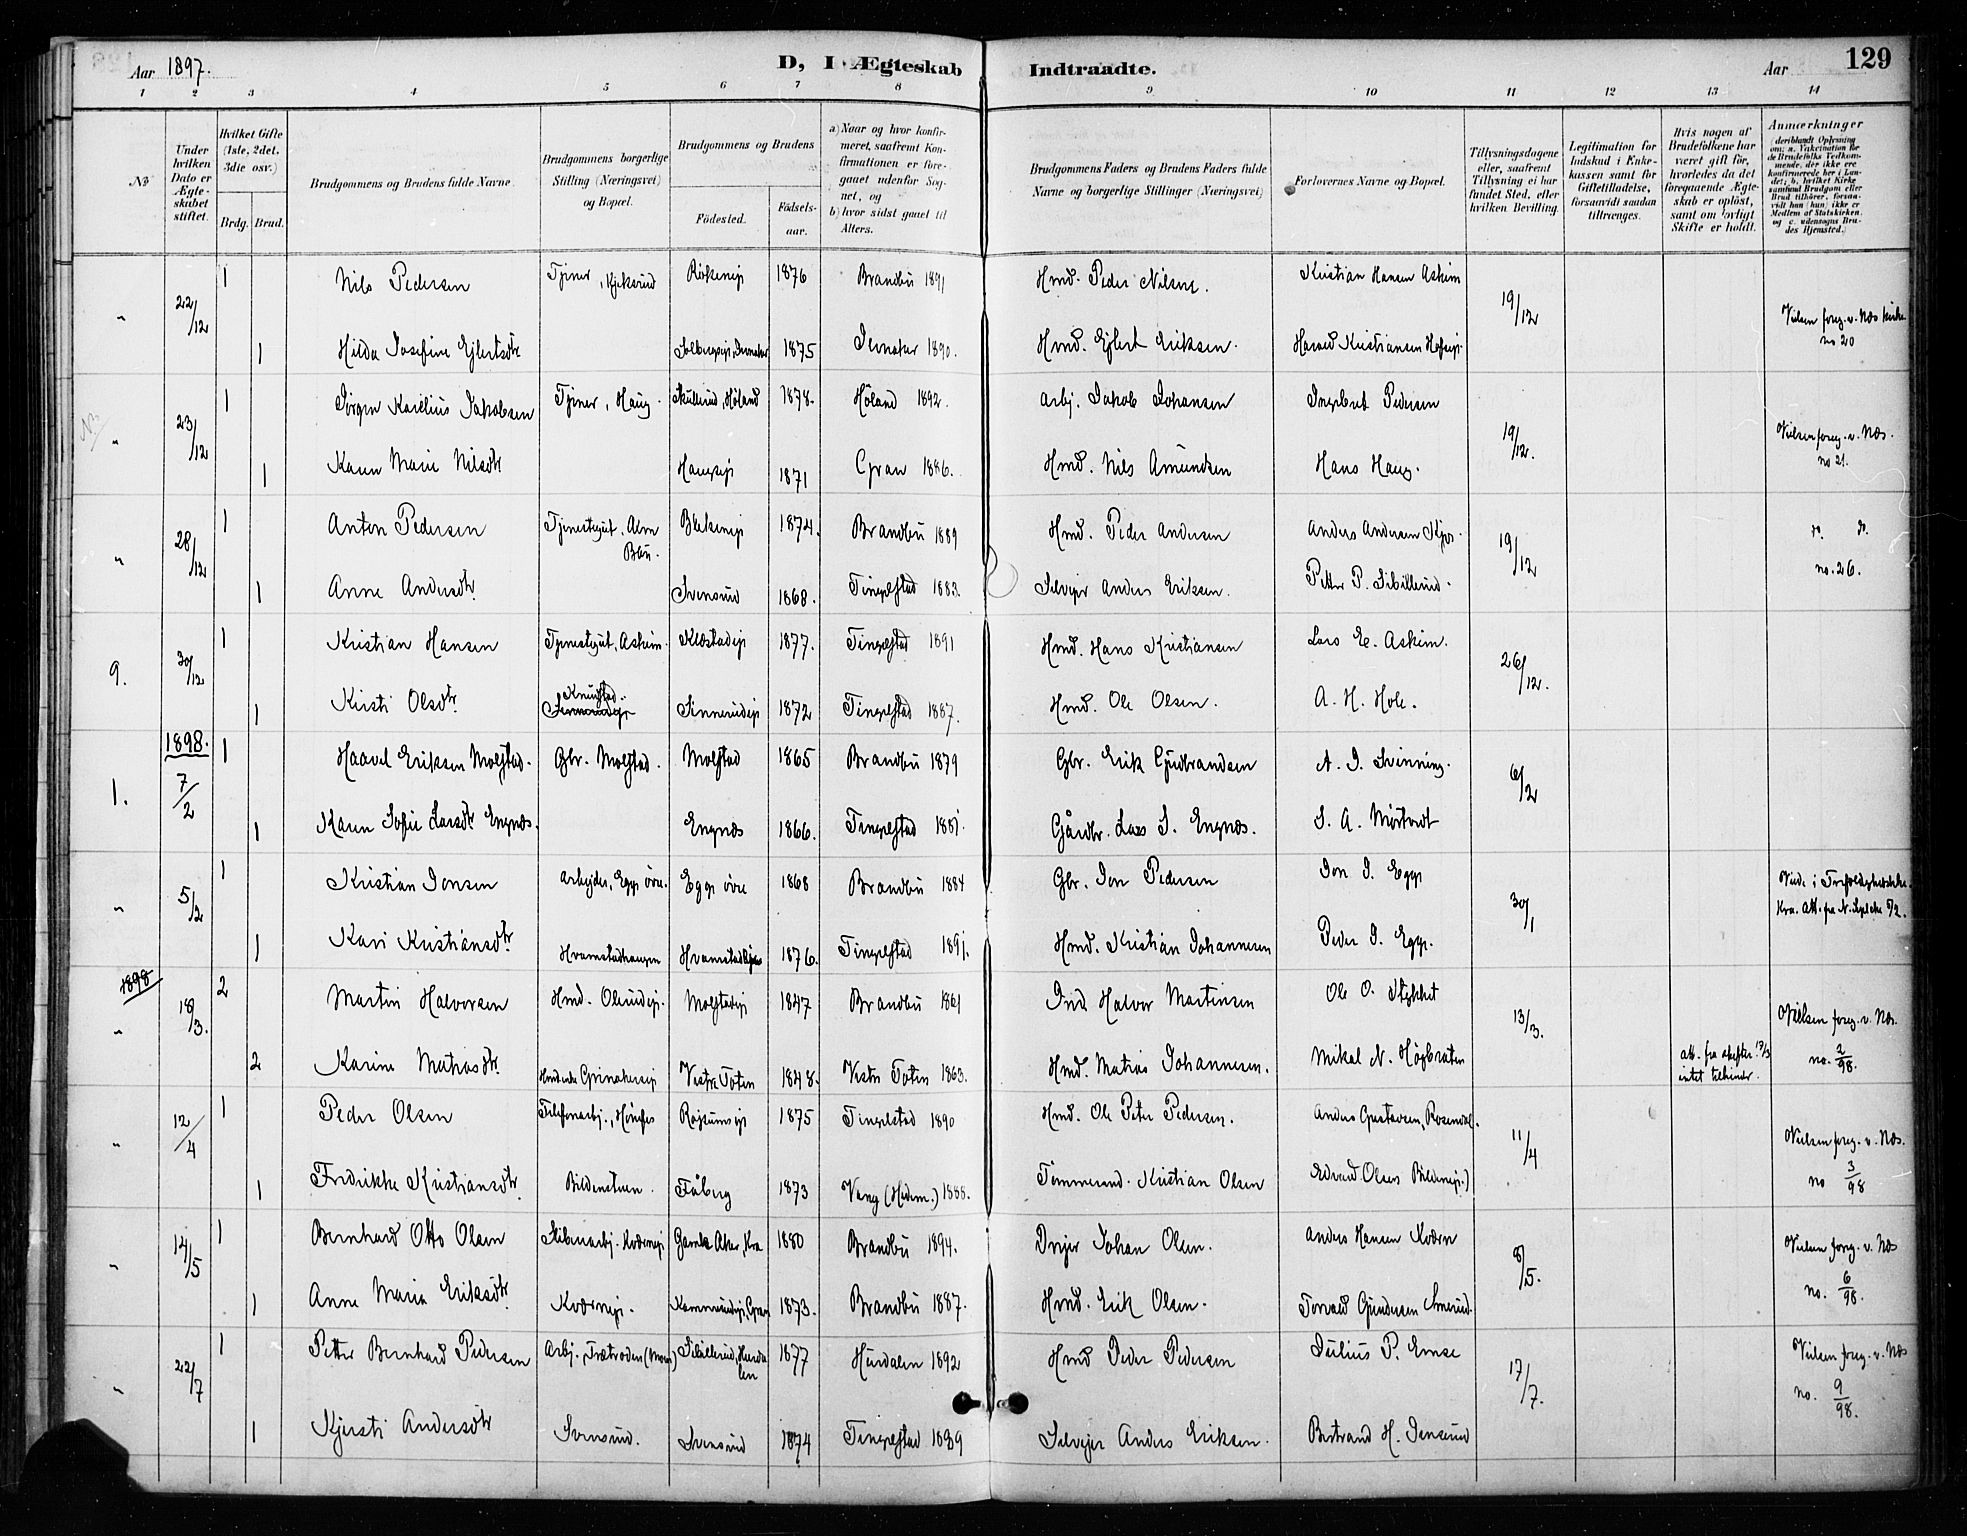 Aar 1897. D, I Ægteskab Indtraadte. Aar 129
1 2 3 4 5 6 7 8 9 10 11 12 13 14
No
Under hvilken Dato er Ægteskabet stiftet.
Hvilket Gifte (1ste, 2det, 3die osv.)
Brdg. Brud.
Brudgommens og Brudens fulde Navne
Brudgommens borgerlige Stilling (Næringsvei) og Bopæl.
Brudgommens og Brudens
Fødested. Fødselsaar.
a) Naar og hvor konfirmeret, saafremt Konfirmationen er foregaaet udenfor Sognet, og
b) hvor sidst gaaet til Alters.
Brudgommens Faders og Brudens Faders fulde Navne og borgerlige Stillinger (Næringsvei)
Forlovernes Navne og Bopæl.
Tillysningsdagene eller, saafremt Tillysning ei har fundet Sted, efter hvilken Bevilling.
Legitimation for Indskud i Enkekassen samt for Giftetilladelse, forsaavidt saadan tiltrænges.
Hvis nogen af Brudefolkene har været gift før, hvorledes da det foregaaende Ægteskab er opløst, samt om lovligt Skifte er holdt.
Anmærkninger
" 22/12 1 Nils Pedersen Tjener, Kjeksrud 1876 Brandbu 1891 Hmd. Peder Nilsen. Kristian Hansen Askim 19/12 Vielsen foreg. v. Næs kirke no 20
1 Hilda Josefine Ejlertsdtr 1875 Jevnaker 1890. Hmd. Ejlert Eriksen. Harald Kristiansen
" 23/12 1 Jørgen Karelius Jakobsen Tjener, Haug. Skullerud, Høland 1878. Høland 1892. Arbj. Jakob Johansen Ingebret Pedersen 19/12. Vielsen foreg. v. Næs. no 21.
1 Karen Marie Nilsdtr Haugejr 1871 Gran 1886. Hmd. Nils Amundsen Hans Haug.
" 28/12 1 Anton Pedersen Tjenestegut, Alm Bbu. 1874. Brandbu 1889 Hmd. Peder Andersen Anders Andersen 19/12 do. do. no. 26.
1 Anne Andersdtr. Svensrud 1868. Tingelstad 1883. Selvejer Anders Eriksen. Petter P. Sibillerud.
9. 30/12 1 Kristian Hansen Tjenestegut, Askim. 1877. Tingelstad 1891 Hmd. Hans Kristiansen Lars E. Askim. 26/12.
1 Kirsti Olsdtr. Knustad. Sinnerudejr 1872 Tingelstad 1887. Hmd. Ole Olsen. A. H. Hole.
1898.
1. 7/2 1 Haavel Eriksen Molstad. Gbr. Molstad. Molstad 1865 Brandbu 1879 Gbr. Erik Gudbrandsen A. J. Svinning. 6/2
1 Karen Sofie Larsdtr Engnæs. Engnæs 1866. Tingelstad 1881. Gårdbr. Lars S. Engnæs. S. A. Mørtvedt
" 5/2 1 Kristian Jonsen Arbejder, Egge øvre. Egge øvre 1868 Brandbu 1884 Gbr. Jon Pedersen Jon J. Egge 30/1
1 Kari Kristiansdtr. Hvamstadhaugen 1876. Tingelstad 1891. Hmd. Kristian Johannesen Peder J. Egge.
1898
" 18/3. 2 Martin Halvorsen Hmd. Olerudejr. Molstadejr 1847 Brandbu 1861 Ind. Halvor Martinsen Ole O. Stykket 13/3. Vielsen foreg. v. Næs. no. 2/98.
2 Karine Matiasdtr. Vestre Toten 1848. Vestre Toten 1863. Hmd. Matias Johannesen. Mikal N. Høgbraten intet tilhinder.
" 12/4 1 Peder Olsen Telefonarbj., Hønefos 1875 Tingelstad 1890 Hmd. Ole Peter Pedersen. Anders Gustavsen, Rosendal. 11/4 Vielsen foreg. v. Næs. no 3/98
1 Fredrikke Kristiansdtr. Bildenstuen. Fåberg 1873 Vang (Hedem.) 1888. Tømmermd. Kristian Olsen Edvard Olsen
" 14/5 1 Bernhard Otto Olsen Gamle Aker, Kra 1880 Brandbu 1894. Johan Olsen. Anders Hansen Kværn 8/5. Vielsen foreg. v. Næs no. 6/98.
1 Anne Maria Eriksdtr. Kværnejr. 1873. Brandbu 1887. Hmd. Erik Olsen. Torvald Gundersen Smerud.
" 22/7 1 Petter Bernhard Pedersen Sibillerud, Hurdalen 1877 Hurdalen 1892 Hmd Peder Pedersen Julius P. Emse 17/7. Vielsen foreg. v. Næs no. 9/98.
1 Kjersti Andersdtr Svensrud. Svensrud 1874 Tingelstad 1889 Selvejer Anders Eriksen. Bertrand H. Jensrud